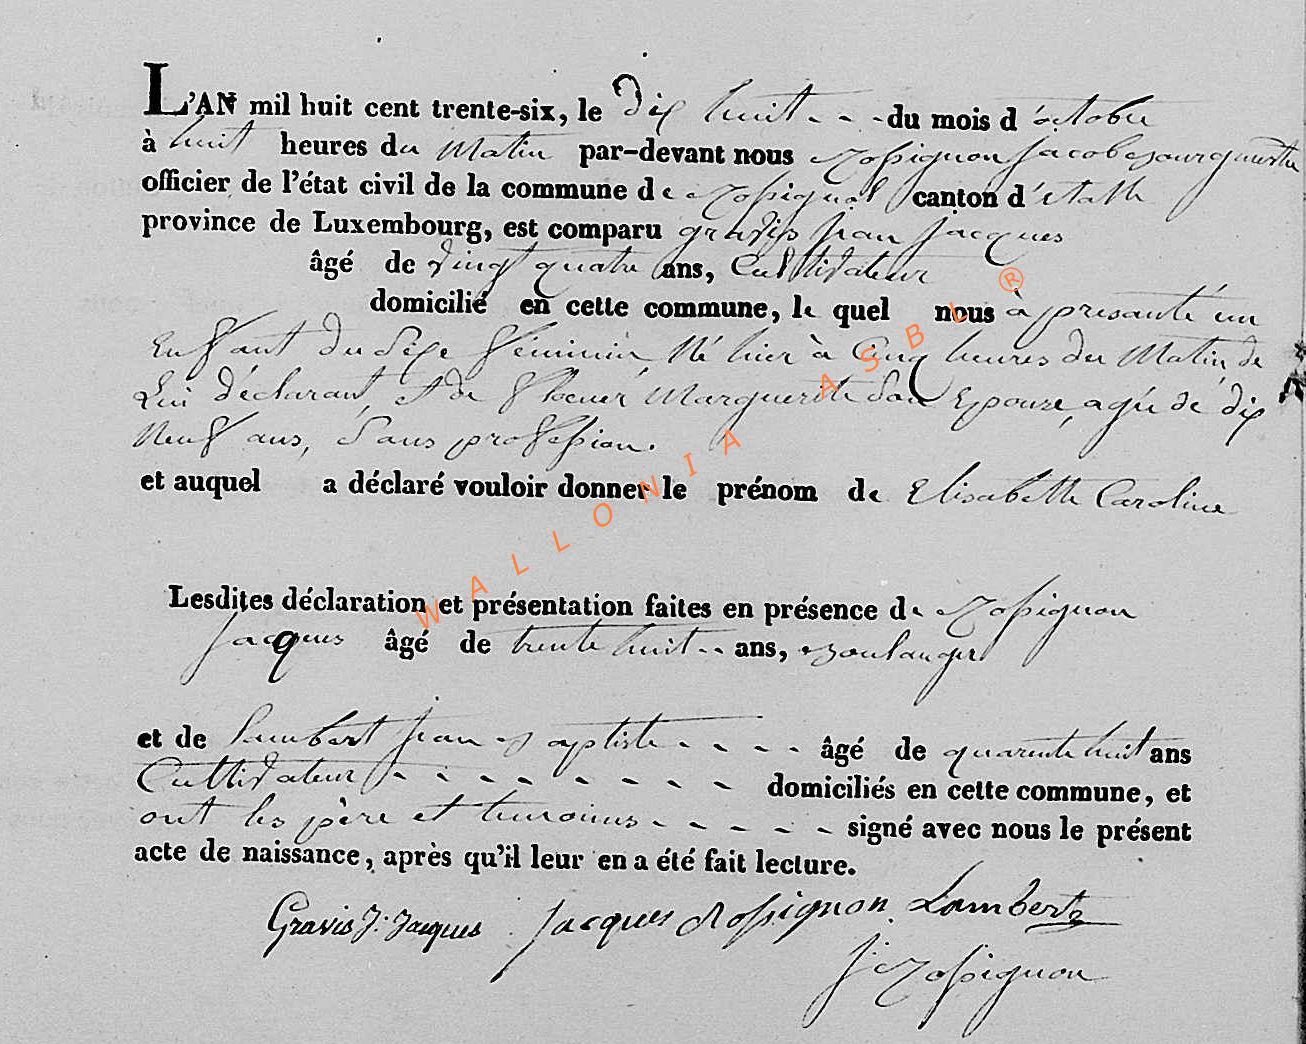 L'AN mil huit cent trente-six, le dix huit - - - du mois d'octobre
à huit heures du Matin par-devant nous Rossignon Jacob Bourguemetre
officier de l'état civil de la commune de Rossignol canton d'étalle
province de Luxembourg, est comparu gravis jean jacques
âgé de vingt quatre ans, Cultivateur
domicilié en cette commune, le quel nous à présanté un
Enfant du Sexe féminin, Né hier à Cinq heures du Matin, de
Lui déclarant, et de Marguerite Son Epouze, agée de dix
Neuf ans, Sans profession.
et auquel a déclaré vouloir donner le prénom de Elisabette Caroline
Lesdites déclaration et présentation faites en présence de Rossignon
jacques âgé de trente huit - - ans, Boulanger
et de Lambert jean Baptiste - - - - âgé de quarente huit ans
Cultivateur - - - - - - - - - domiciliés en cette commune, et
ont les père et temoins - - - - - signé avec nous le présent
acte de naissance, après qu'il leur en a été fait lecture.
Gravis J. Jacques jacques Rossignon Lambert
j. Rossignon
WALLONIA ASBL ®